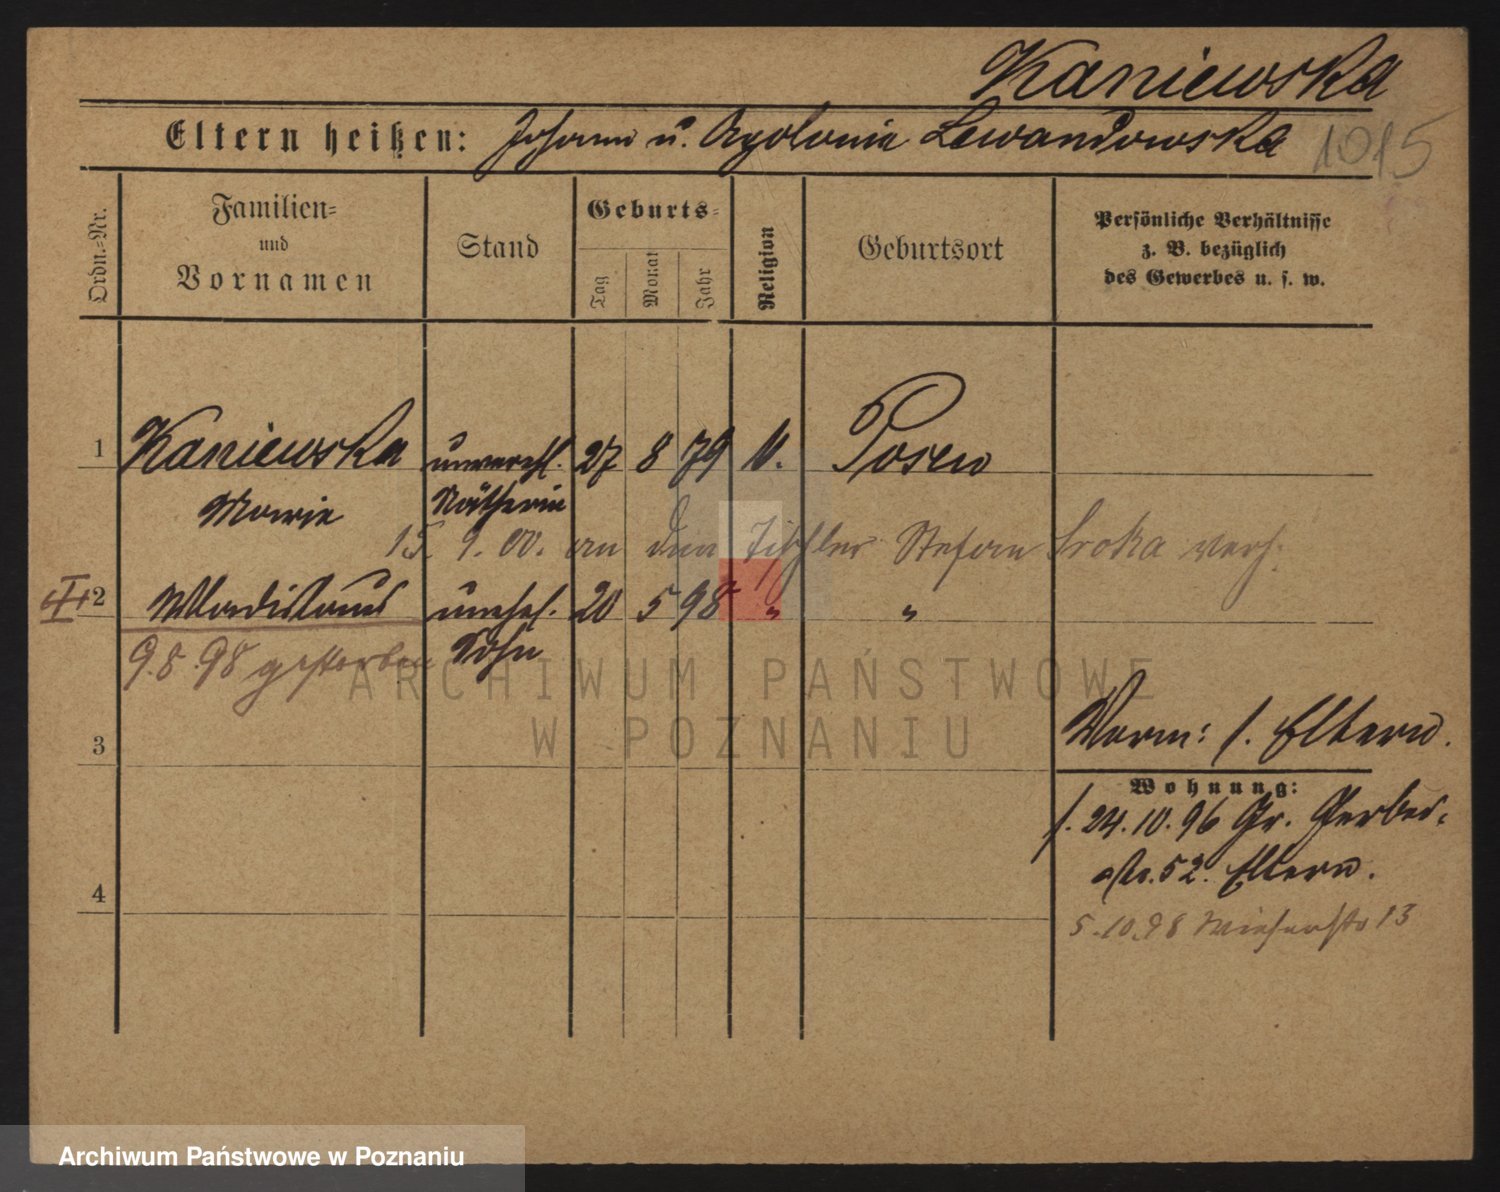 Kaniewska
Eltern heißen: Johann u. Apolonia Lewandowska 1015
Ordn.-Nr.
Familien- und Vornamen
Stand
Geburts-
Tag
Monat
Jahr
Religion
Geburtsort
Persönliche Verhältnisse
z. B. bezüglich
des Gewerbes u. s. w.
1 Kaniewska unverehl. 27 8 79 k. Posen
Marie Nätherin
15. 9. 00. an den Tischler Stefan Sroka verh.
2 Wladislaus unehel. 20 5 98 " "
9.8.98 gestorben Sohn
ARCHIWUM PAŃSTWOWE
W POZNANIU
3
Vorm: s. Eltern.
Wohnung:
s. 24.10.96 Gr. Gerber-
str. 52. Eltern.
4
5.10.98 Wiesenstr 13
Archiwum Państwowe w Poznaniu